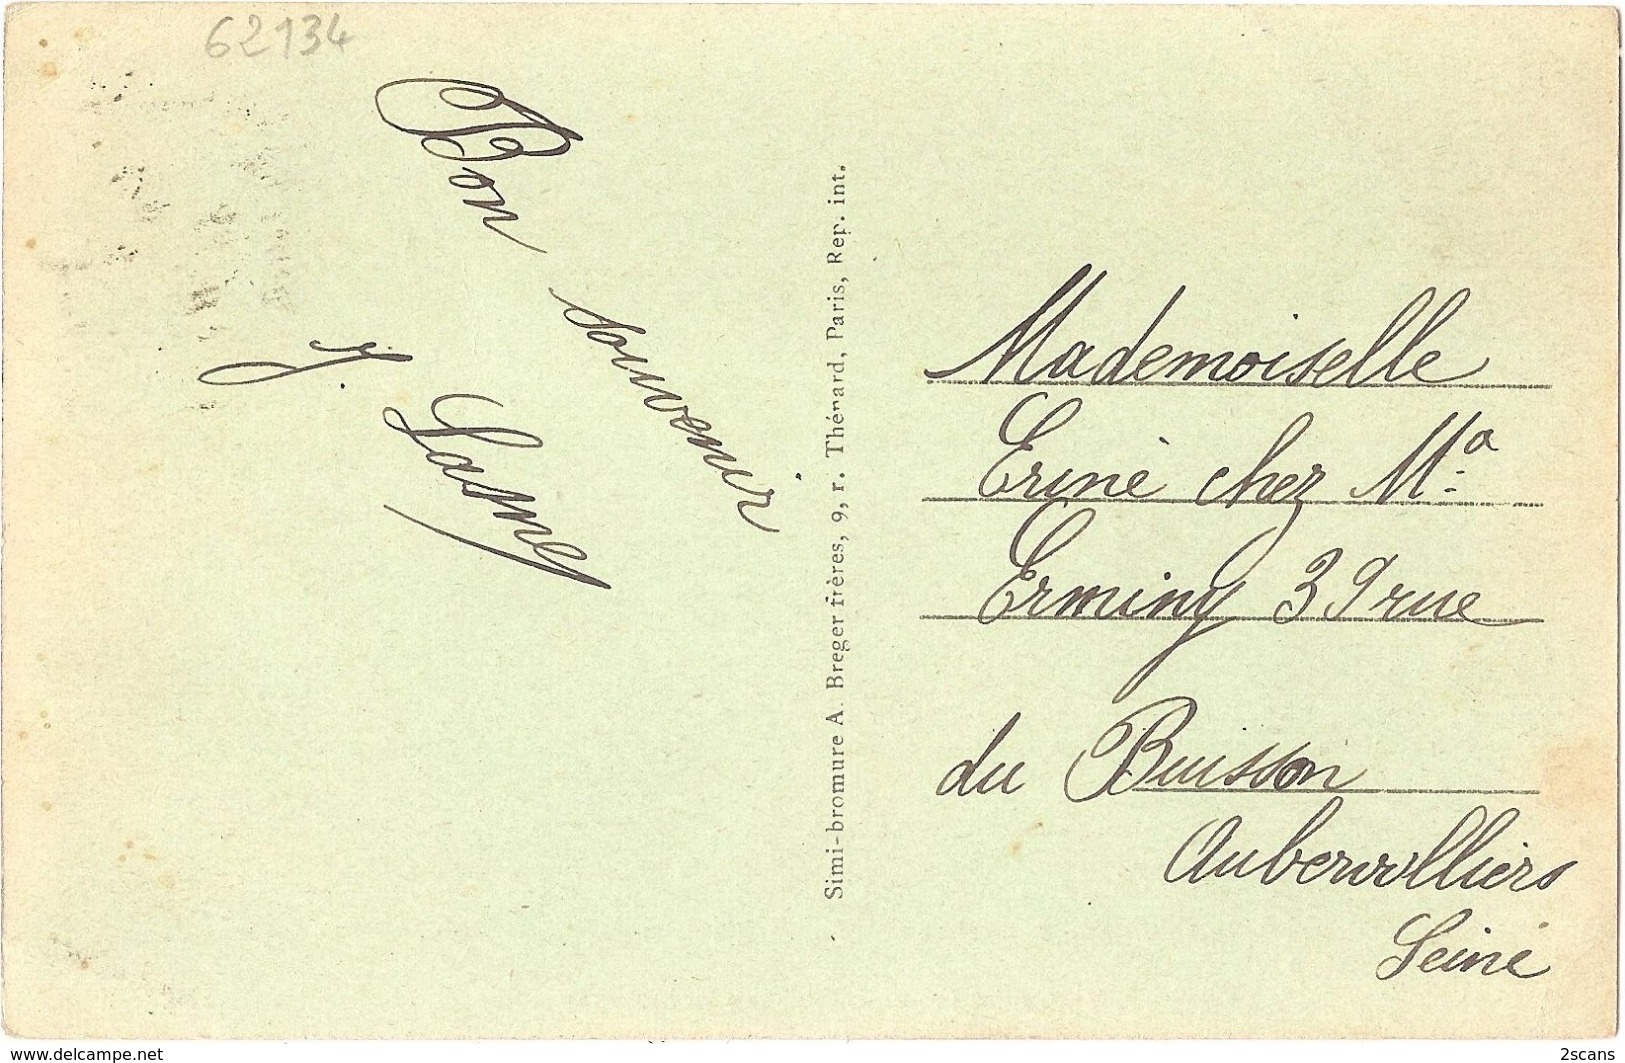 62134
Bon souvenir
J. Lasney
Simi-bromure A. Breger frères, 9, r. Thénard, Paris, Rep. int.
Mademoiselle
Erine chez Mª
Erminy 39 rue
du Buisson
Aubervilliers
Seine
www.delcampe.net
2scans